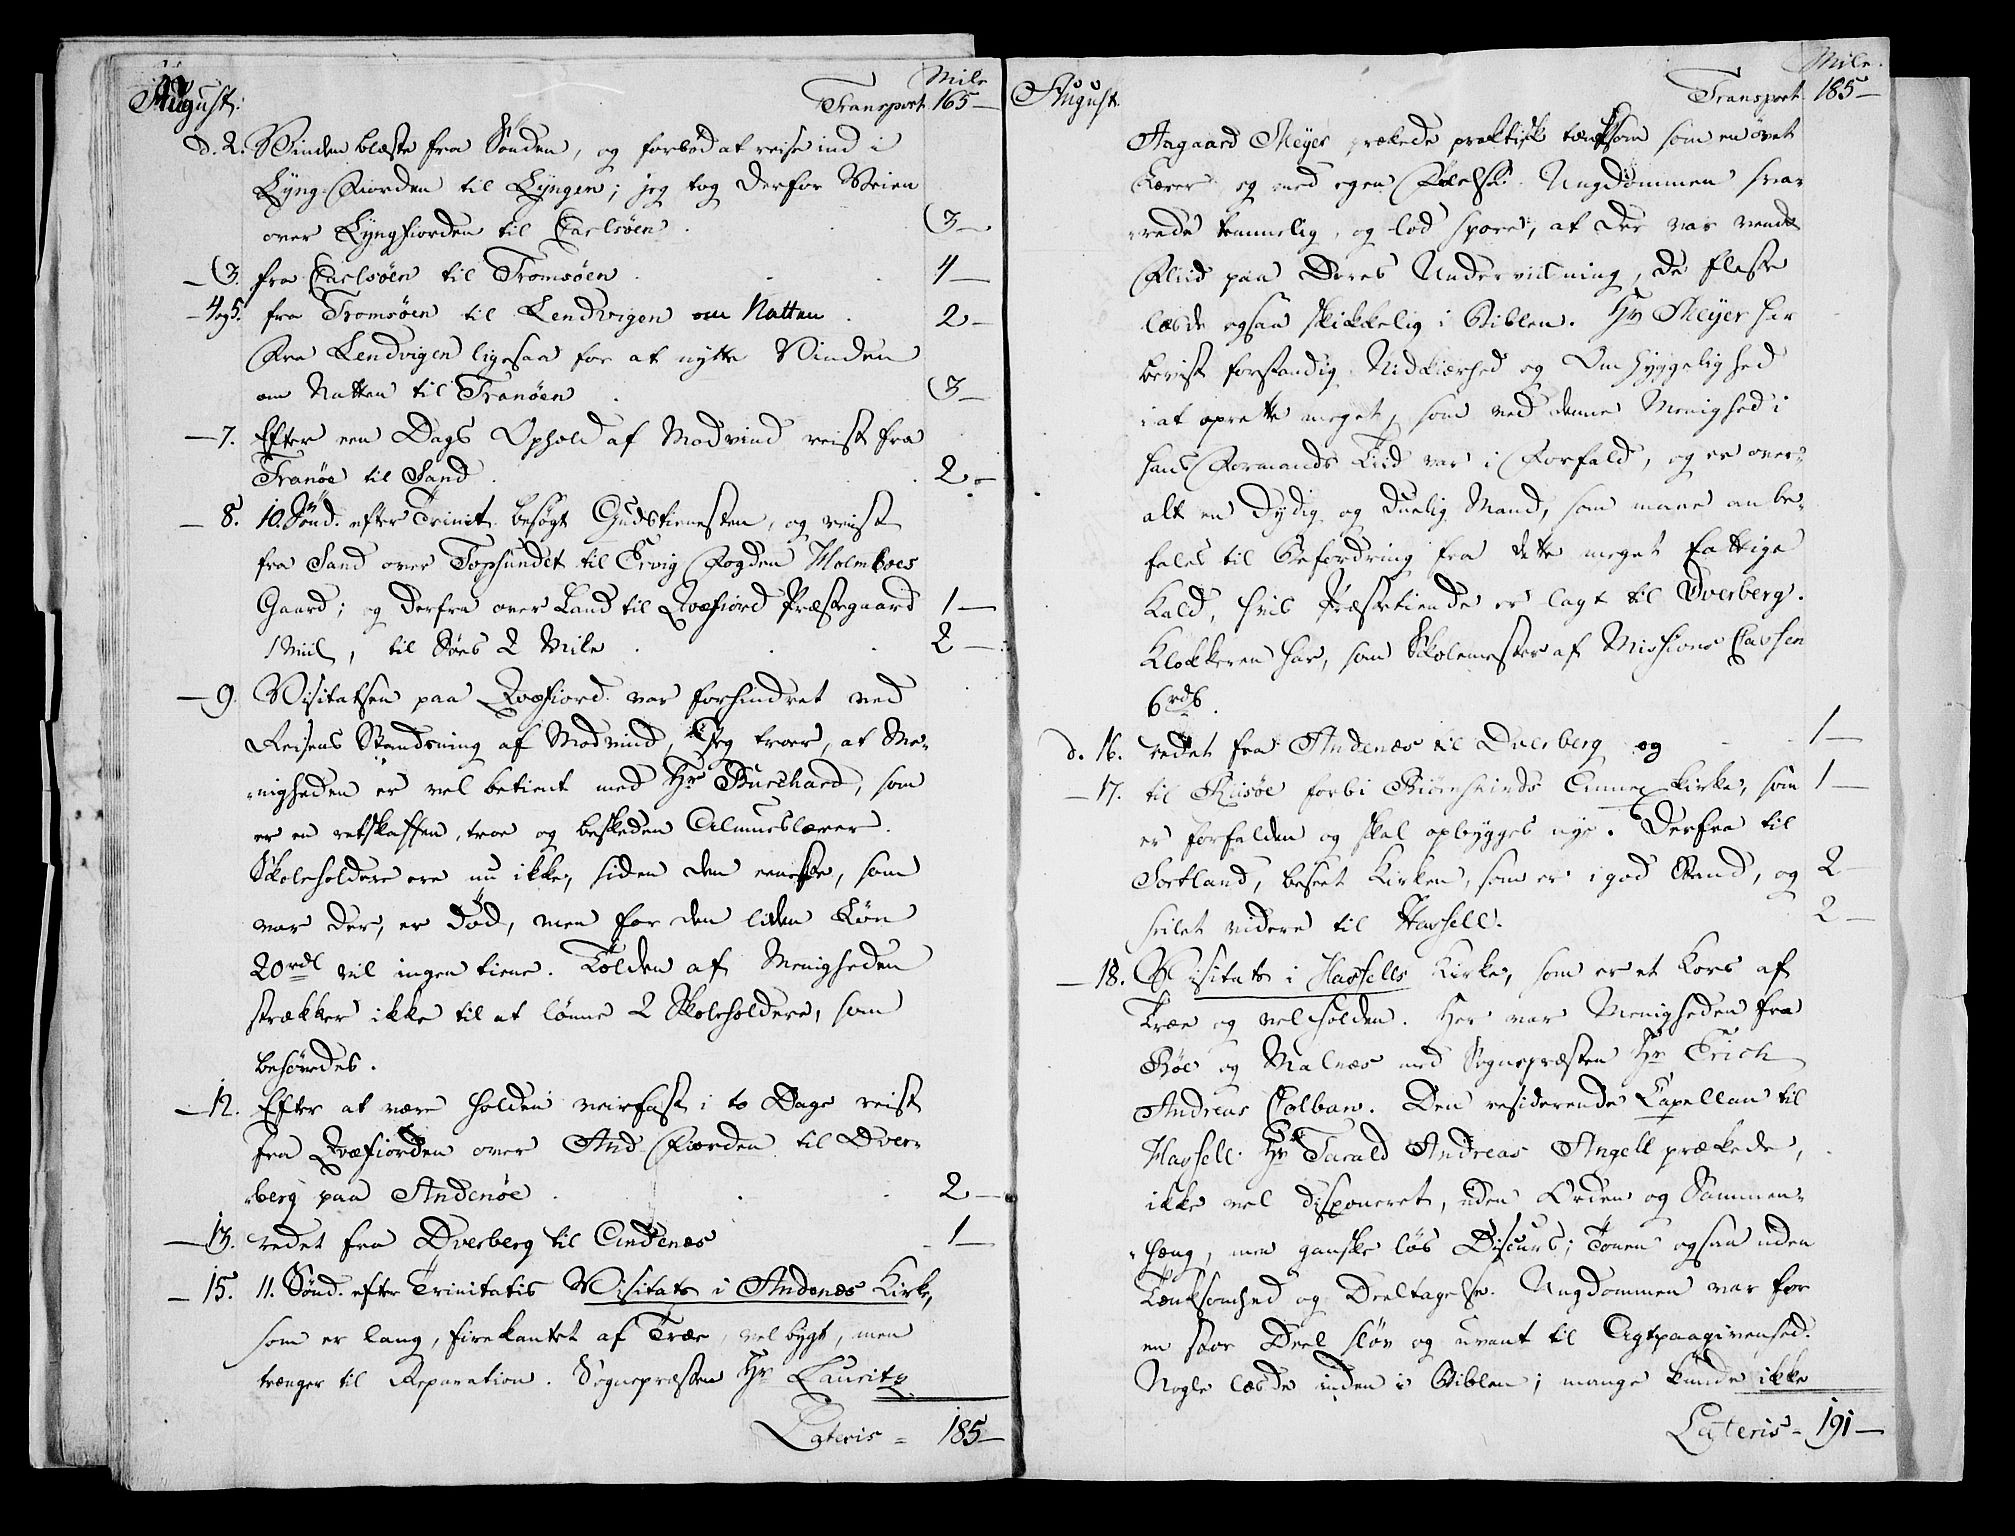 August.
Mile
Transport 165 —
d. 2. Vinden blæste fra Sønden, og forbød at reise ind i
Lyng-Fiorden til Lyngen; jeg tog derfor Veien
over Lyngfiorden til Carlsøen . 3 —
— 3. fra Carlsøen til Tromsøen . 4 —
— 4 og 5. fra Tromsøen til Lendvigen om Natten . 2 —
Fra Lendvigen ligesaa for at nytte Vinden
om Natten til Tranøen . 3 —
— 7. Efter een Dags Ophold af Modvind reist fra
Tranøe til Sand . 2 —
— 8. 10. Sönd. efter Trinit. besøgt Gudstienesten, og reist
fra Sand over Topsundet til Ervig Fogden Holmboes
Gaard; og derfra over Land til Qvæfiord Præstegaard 1 —
1 Miil, til Søes 2 Mile . 2 —
— 9. Visitatsen paa Qvæfiord var forhindret ved
Reisens Standsning af Modvind, Jeg troer, at Me-
nigheden er vel betient med Hr Burchard, som
er en retskaffen, troe og beskeden Almueslærer.
Skoleholdere ere nu ikke, siden den eeneste, som
var der, er död, men for den liden Løn
20 rdl vil ingen tiene. Tolden af Menigheden
strækker ikke til at lønne 2 Skoleholdere, som
behøvedes.
— 12. Efter at være holden veirfast i to Dage reist
fra Qvæfiorden over And-Fiorden til Dver-
berg paa Andenöe . 2 —
— 13. roet fra Dverberg til Andenæs 1 —
— 15. 11. Sønd. efter Trinitatis Visitats i Andenæs Kirke,
som er lang, firekantet af Træe, vel bygt, men
trænger til Reparation. Sognepræsten Hr Lauritz
Lateris = 185 —
August.
Mile.
Transport 185 —
Aagaard Meyer prækede praktisk tænksom som en øvet
Lærer og med egen Følelse. Ungdommen sva-
rede temmelig, og lod spore, at der var vendt
Fliid paa deres Underviisning, de fleste
læsde ogsaa skikkelig i Biblen. Hr Meyer har
beviist forstandig Nidkierhed og Omhyggelighed
i at oprette meget, som ved denne Menighed i
hans Formands Tiid var i Forfald, og er over-
alt en dydig og duelig Mand, som maae anbe-
fales til Befordring fra dette meget fattige
Kald, hvis Præstetiende er lagt til Dverberg.
Klokkeren har, som Skolemester af Missions Cassen
6 rdl.
d. 16. roet fra Andenæs til Dverberg og 1 —
— 17. til Riisöe forbi Biörnskinds Annex Kirke, som 1 —
er forfalden og skal opbygges nye. Derfra til
Sortland, beseet Kirken, som er i god Stand, og 2 —
seilet videre til Hassell. 2 —
— 18. Visitats i Hassells Kirke, som er et Kors af
Træe og vel holden. Her var Menigheden fra
Böe og Malnæs med Sognepræsten Hr Erich
Andreas Colban. Den residerende Capellan til
Hassell Hr Tarald Andreas Angell prækede,
ikke vel disponeret, uden Orden og Sammen-
hæng, men ganske løs Discurs; Tonen ogsaa uden
Tænksomhed og Deeltagelse. Ungdommen var for
en stor Deel sløv og uvant til Agtpaagivenhed.
Nogle læsde inden i Biblen; mange kunde ikke
Lateris = 191 —